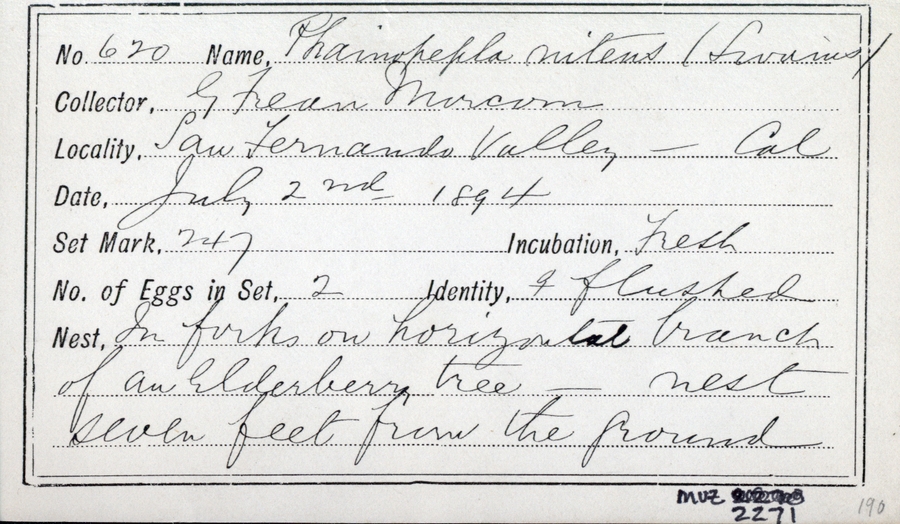 No. 620 Name, Phainopepla nitens (Swains)
Collector, G Frean Morcom
Locality, San Fernando Valley — Cal
Date, July 2nd 1894
Set Mark, 747 Incubation, Fresh
No. of Eggs in Set, 2 Identity, ♀ flushed
Nest, In forks on horizontal branch
of an Elderberry tree — nest
seven feet from the ground
MVZ
2271
190